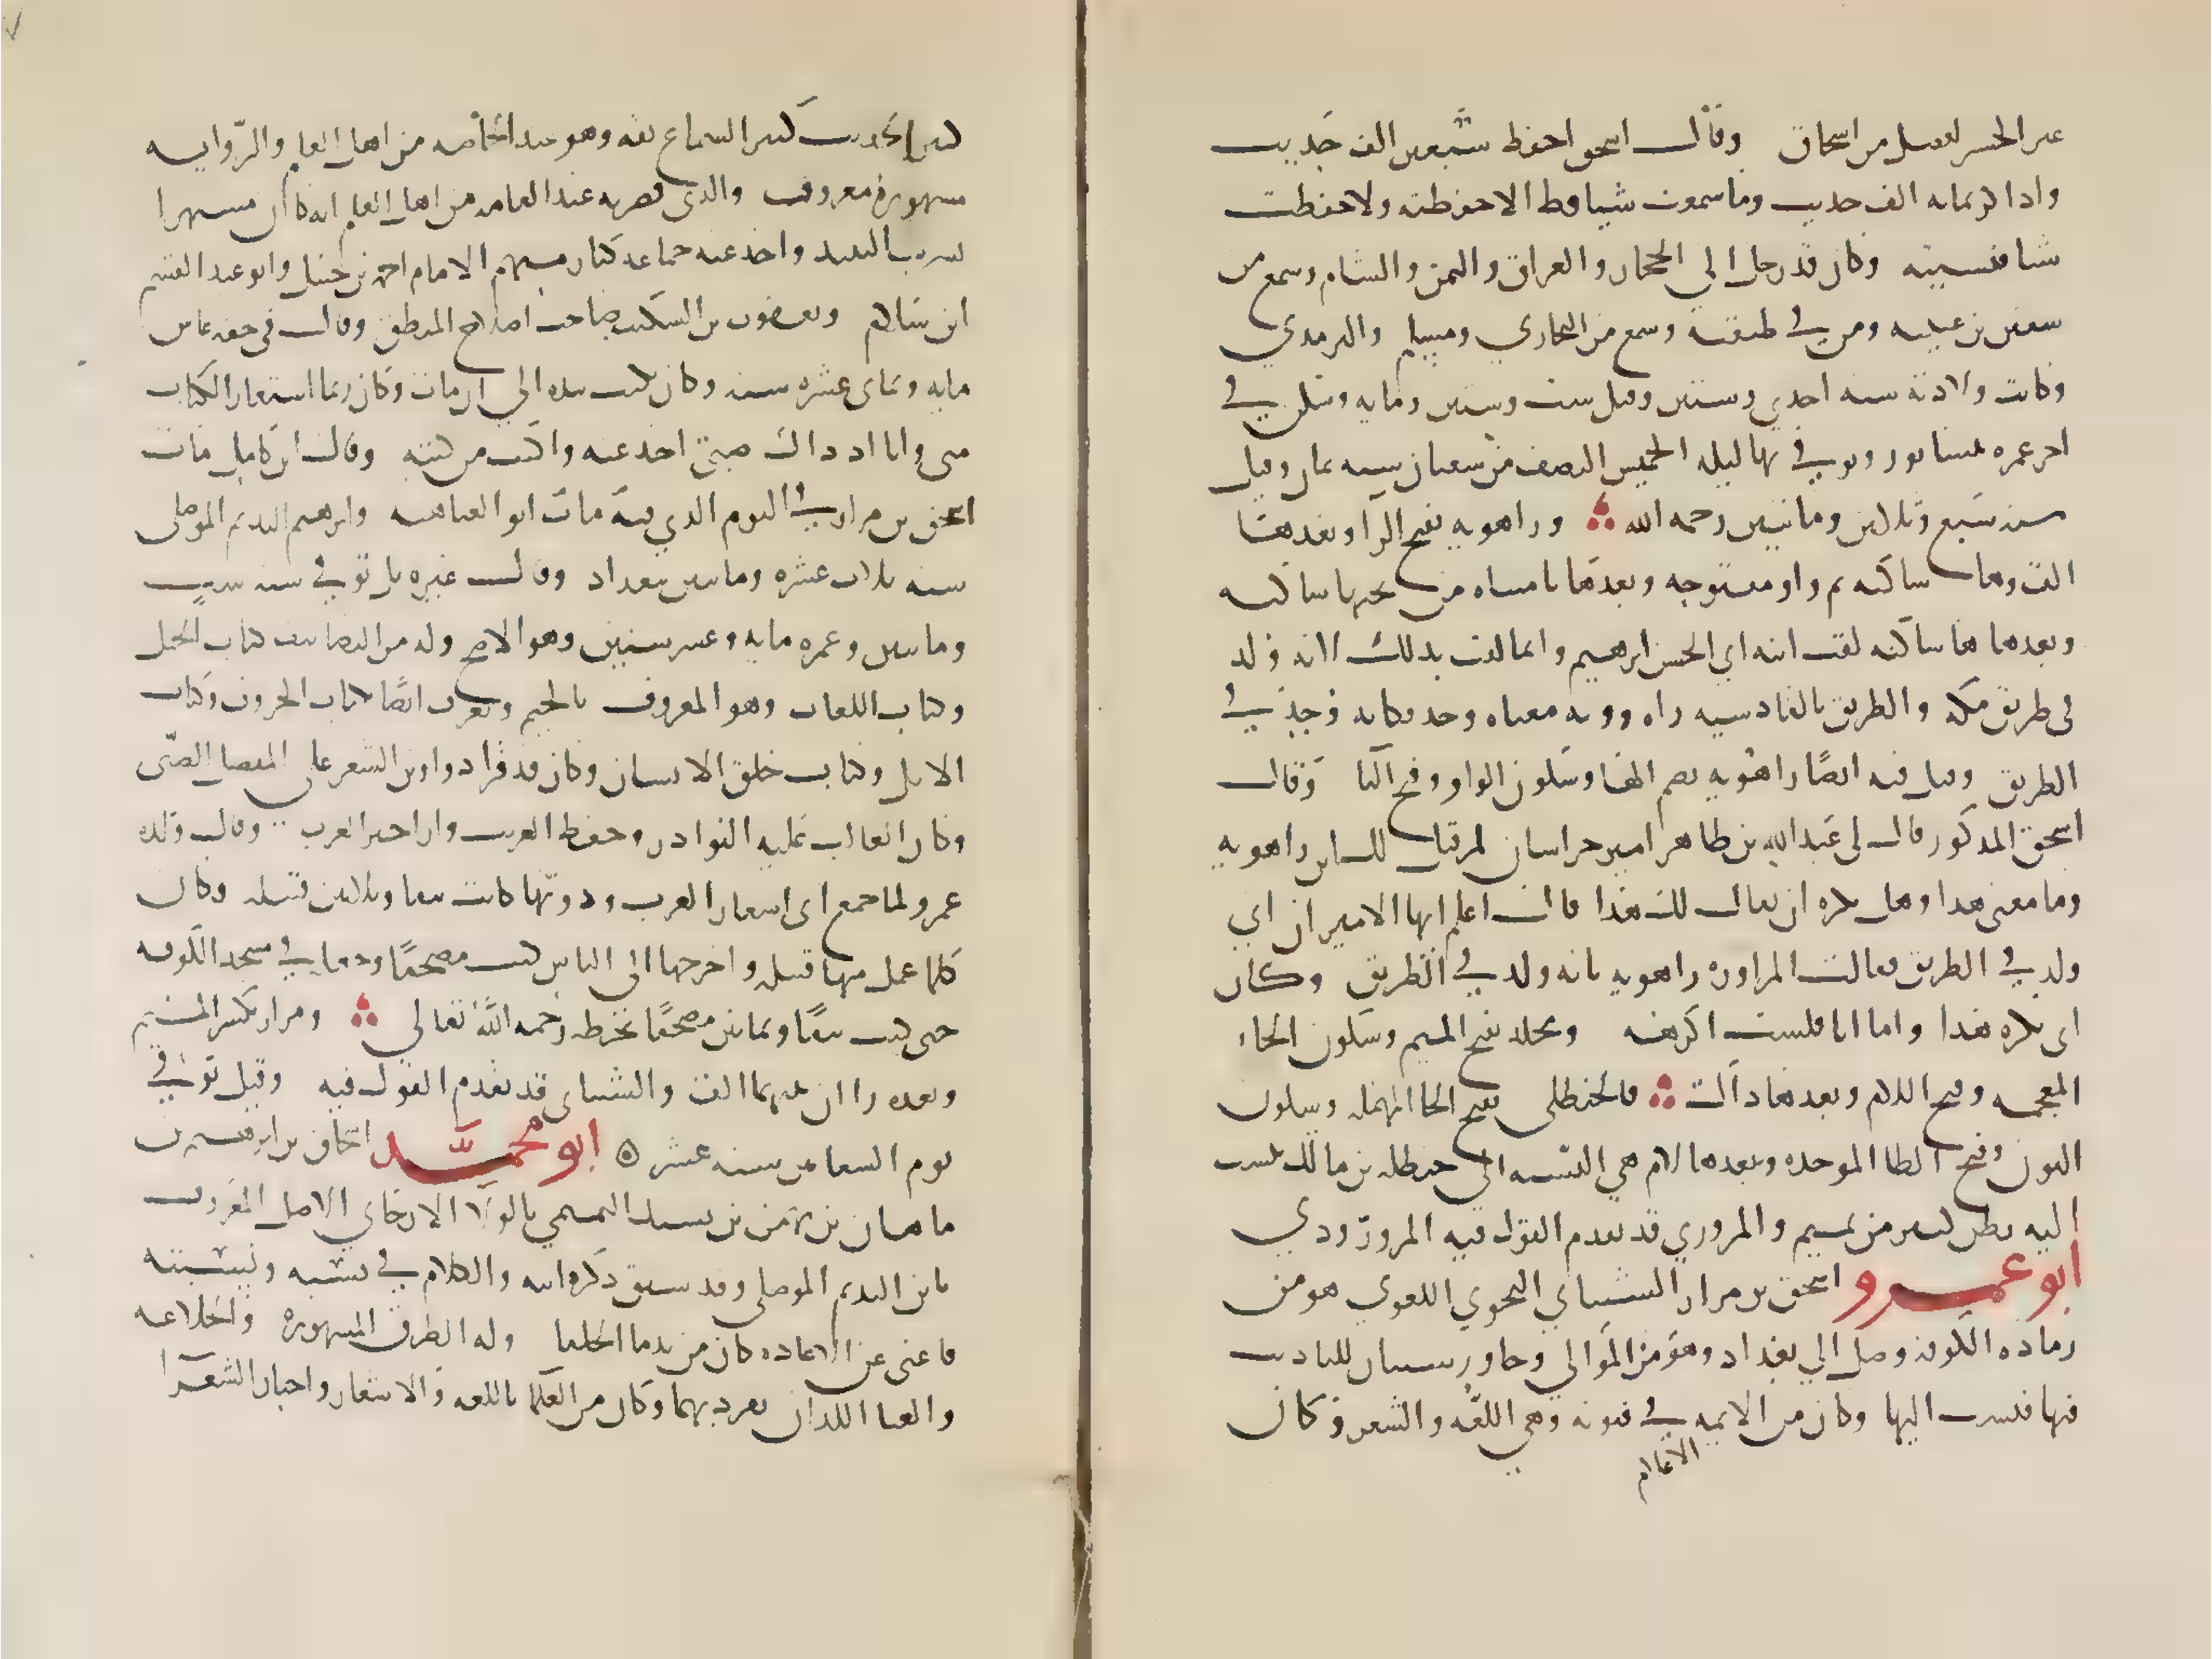 عبر الجسر افضل من اسحاق وقال اسحق احفظ سبعين الف حديث
واذاكر بمائة الف حديث وما سمعت شيا قط الا حفظته ولا حفظت
شيا فنسيته وكان قد رحل الي الحجاز والعراق واليمن والشام وسمع من
سفين بن عيينه ومن في طبقته وسمع منه البخاري ومسلم والترمدي
وكانت ولادته سنه احدي وستين وقيل ست وستين ومايه وسكن في
اخر عمره نيسابور وتوفي بها ليله الخميس النصف من شعبان سنه ثمان وقيل
سنه سبع وثلاثين ومايتين رحمه الله وراهويه بفتح الرا وبعدها
الف وها ساكنه ثم واو مفتوحه وبعدها يا مثناه من تحتها ساكنه
وبعدها ها ساكنه لقب ابيه ابي الحسن ابرهيم وانما لقب بذلك لانه ولد
في طريق مكه والطريق بالفارسيه راه وويه معناه وجد فكانه وجد في
الطريق وقيل فيه ايضًا راهُويه بضم الها وسكون الواو وفتح اليا وقال
اسحق المذكور قال لي عبد الله بن طاهر امير خراسان لم قيل لك ابن راهويه
وما معنى هذا وهل تكره ان يقال لك هذا قال اعلم ايها الامير ان ابي
ولد في الطريق فقالت المراوزه راهويه بانه ولد في الطريق وكان
ابي يكره هذا واما انا فلست اكرهه ومخلد بفتح الميم وسكون الخاء
المعجمه وفتح اللام وبعدها دال والحنظلي بفتح الحا المهمله وسكون
النون وفتح الظا الموحده وبعدها لام هي النسبه الى حنظله بن مالك ينسب
اليه بطن كبير من تميم والمروزي قد تقدم القول فيه المروزودي
ابو عمرو اسحق بن مرار الشيباني النحوي اللغوي هو من
رماده الكوفه وصل الي بغداد وهو من الموالي وجاور شيبان للتاديب
فيها فنسب اليها وكان من الايمه في فنونه وهي اللغه والشعر وكان
الاعلام
كثير الحديث كثير السماع ثقه وهو عند الخاصه من اهل العلم والروايه
مشهور معروف والذي قصر به عند العامه من اهل العلم انه كان مشتهرا
بشرب النبيذ واخذ عنه جماعه كبار منهم الامام احمد بن حنبل وابو عبيد القسم
ابن سلام ويعقوب بن السكيت صاحب اصلاح المنطق وقال في حقه عاش
مايه وثماني عشره سنه وكان يكتب بيده الي ان مات وكان ربما استعار الكتاب
مني وانا اذ ذاك صبي اخذ عنه واكتب من كتبه وقال ابن كامل مات
اسحق بن مرار في اليوم الذي فيه مات ابو العتاهيه وابرهيم النديم الموصلي
سنه ثلاث عشره ومايتين ببغداد وقال غيره بل توفي سنه ست
ومايتين وعمره مايه وعشر سنين وهو الاصح وله من التصانيف كتاب الخيل
وكتاب اللغات وهو المعروف بالجيم ويعرف ايضًا بكتاب الحروف وكتاب
الابل وكتاب خلق الانسان وكان قد قرا دواوين الشعر علي المفضل الضبّى
وكان الغالب عليه النوادر وحفظ الغريب واراجيز العرب وقال ولده
عمرو لما جمع ابي اشعار العرب ودونها كانت نيفا وثلاثين قبيله وكان
كلما عمل منها قبيله واخرجها الى الناس كتب مصحفًا وجعله في مسجد الكوفه
حتى كتب نيفًا وثمانين مصحفًا بخطه رحمه الله تعالي ومرار بكسر الميم
وبعده راان بينهما الف والشيباني قد تقدم القول فيه وقيل توفي
يوم السعانين سنه عشر ابو محمد اسحاق بن ابرهيم بن
ماهان بن بهمن بن نسك التميمي بالولا الارجاني الاصل المعروف
بابن النديم الموصلي وقد سبق ذكر ابيه والكلام في نسبه ونسبته
فاغنى عن الاعاده كان من ندما الخلفا وله الظرف المشهوره والخلاعه
والغنا اللذان تفرد بهما وكان من العلما باللغه والاشعار واخبار الشعرا